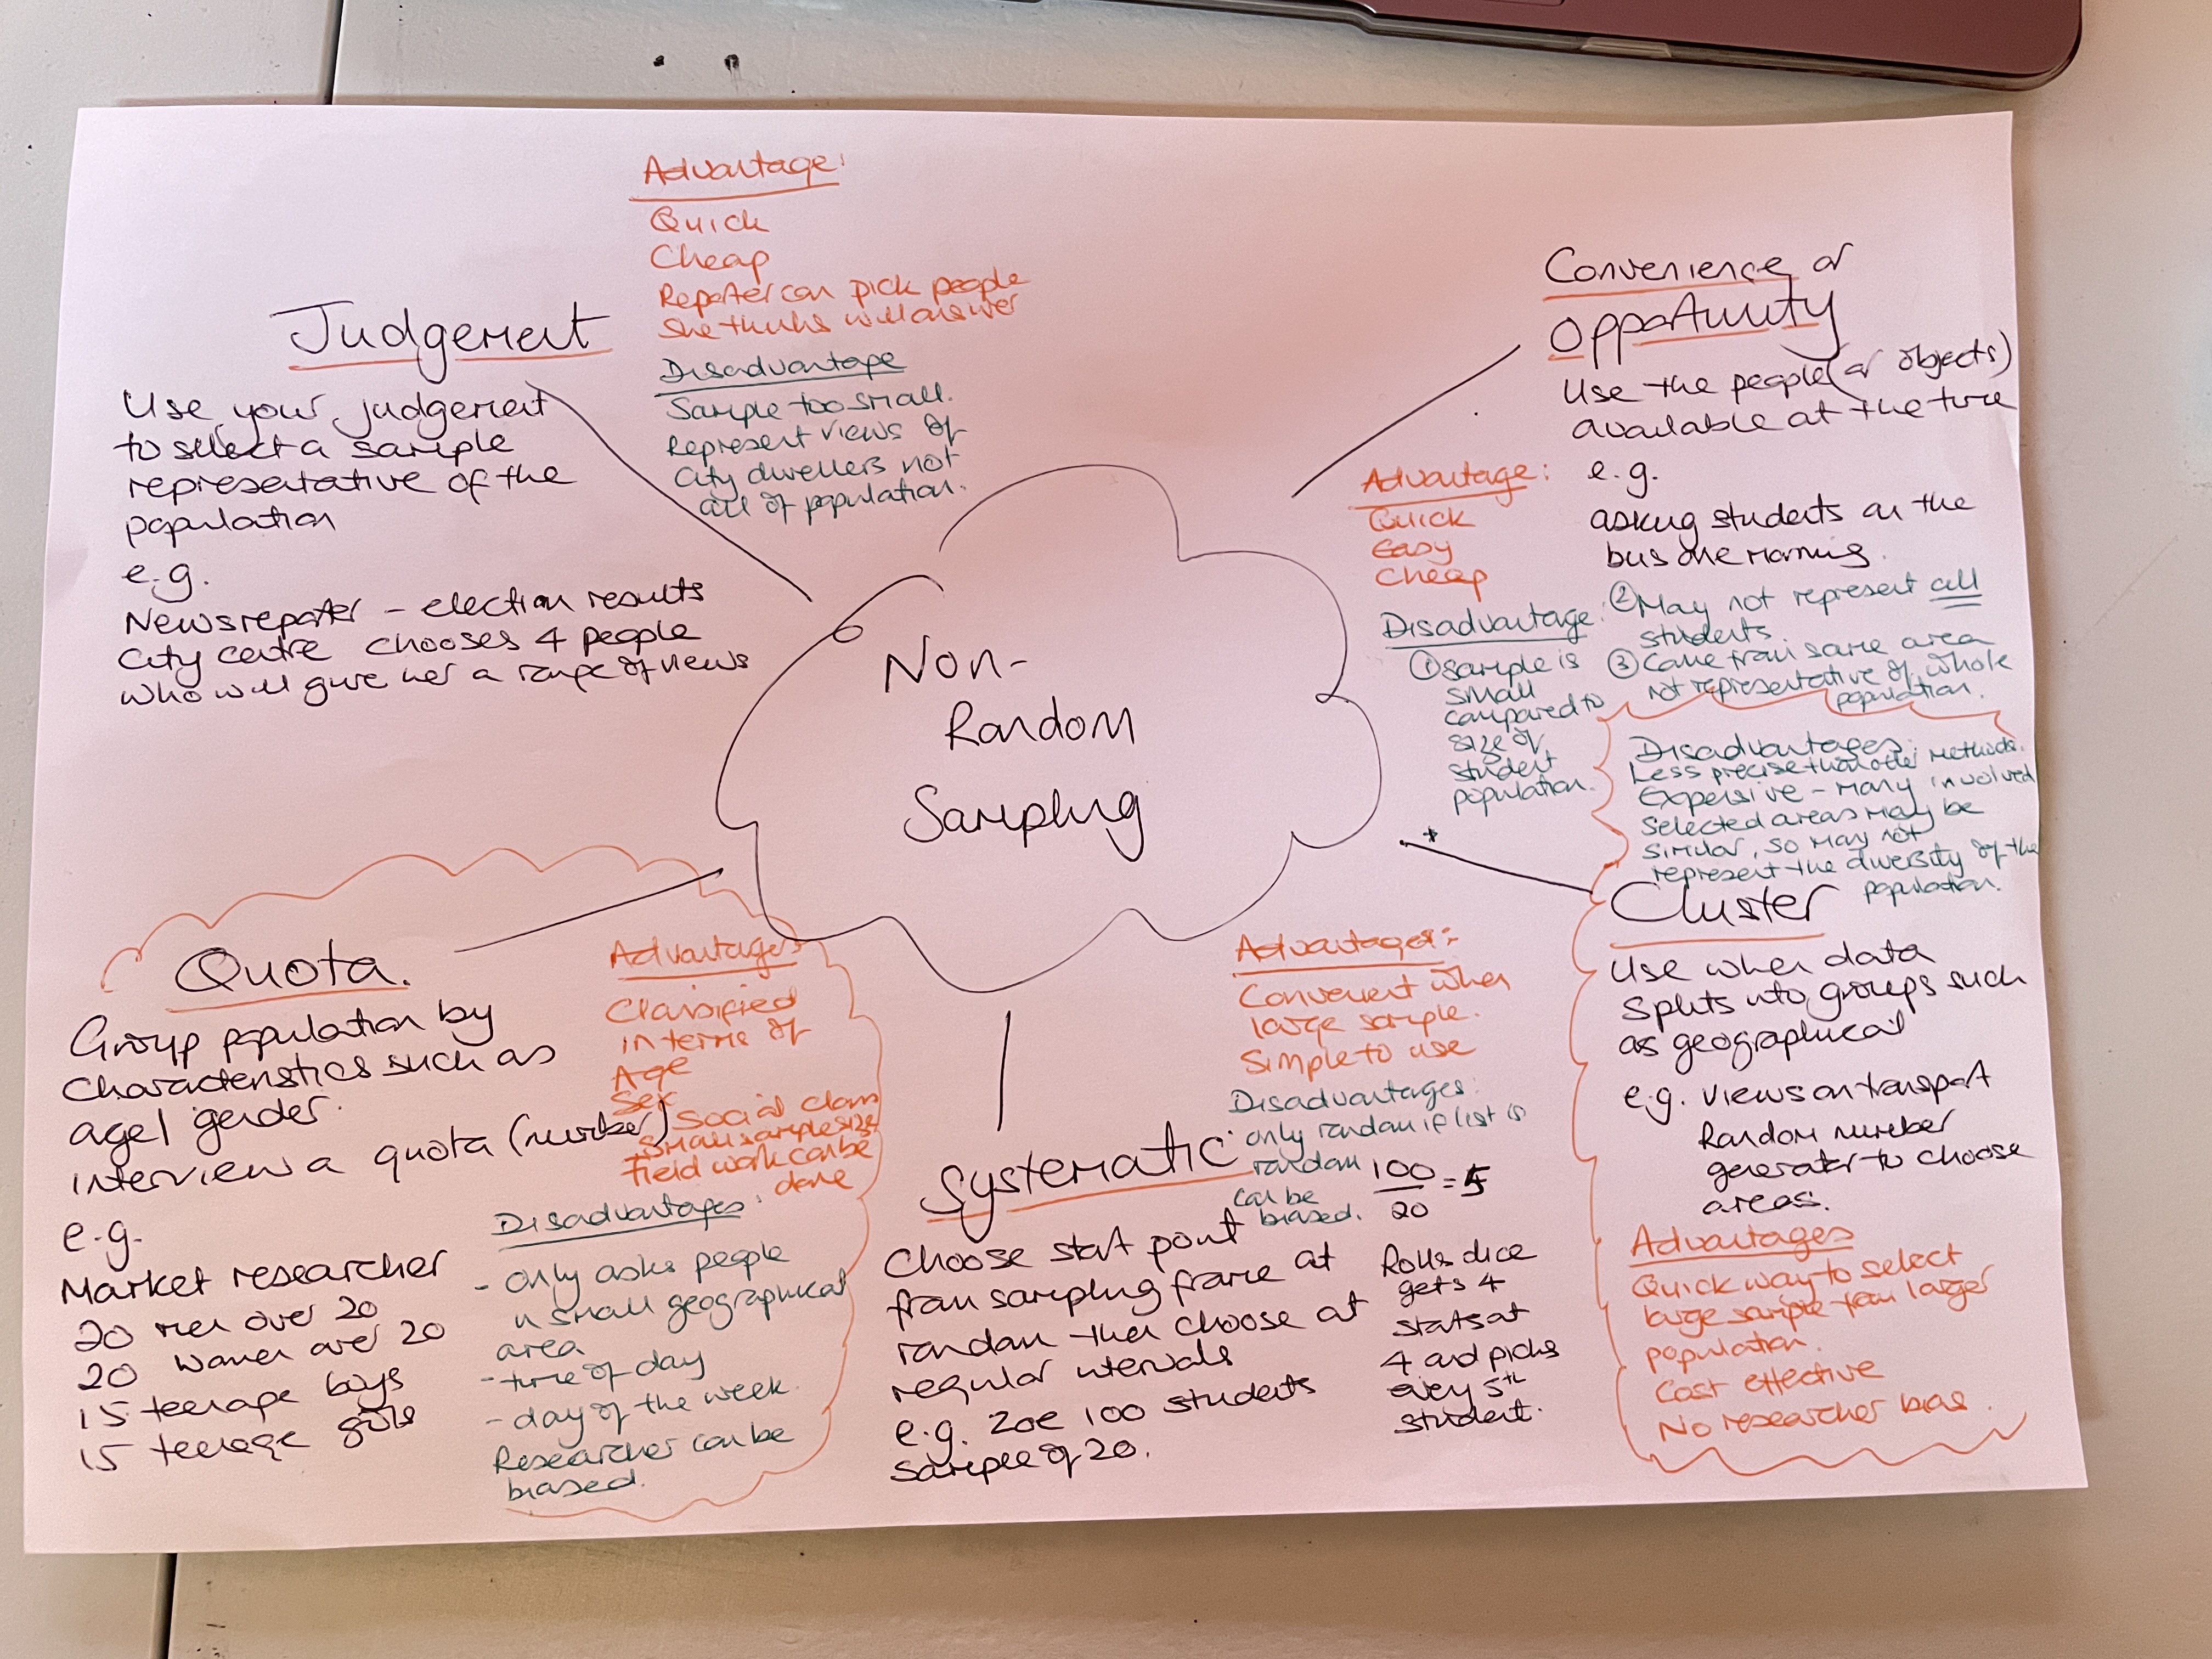 Non-
Random
Sampling
Judgement
Use your judgement
to select a sample
representative of the
population
e.g.
News reporter - election results
City centre chooses 4 people
who will give her a range of views
Advantage:
Quick
Cheap
Reporter can pick people
she thinks will answer
Disadvantage
Sample too small.
Represent views of
City dwellers not
all of population.
Convenience or
opportunity
Use the people (or objects)
available at the time
e.g.
asking students on the
bus one morning.
Advantage:
Quick
Easy
Cheap
Disadvantage:
① sample is
small
compared to
size of
student
population.
② May not represent all
students.
③ Came from same area
not representative of whole
population.
Disadvantages:
Less precise than other methods.
Expensive - many involved
Selected areas may be
similar, so may not
represent the diversity of the
population.
*
Cluster
Use when data
splits into groups such
as geographical
e.g. views on transport
Random number
generator to choose
areas.
Advantages
Quick way to select
large sample from larger
population.
Cost effective
No researcher bias.
Systematic
Choose start point
from sampling frame at
random then choose at
regular intervals
e.g. Zoe 100 students
Sample of 20.
100
20
=5
Rolls dice
gets 4
starts at
4 and picks
every 5th
student.
Advantages:
Convenient when
large sample.
Simple to use
Disadvantages:
only random if list is
random
can be
biased.
Quota.
Group population by
characteristics such as
age/gender.
interview a quota (number)
e.g.
Market researcher
20 men over 20
20 women over 20
15 teenage boys
15 teenage girls
Advantages
Classified
in terms of
Age
Sex
Social class
Small sample size
field work can be
done
Disadvantages:
- only asks people
in small geographical
area
- time of day
- day of the week.
Researcher can be
biased.